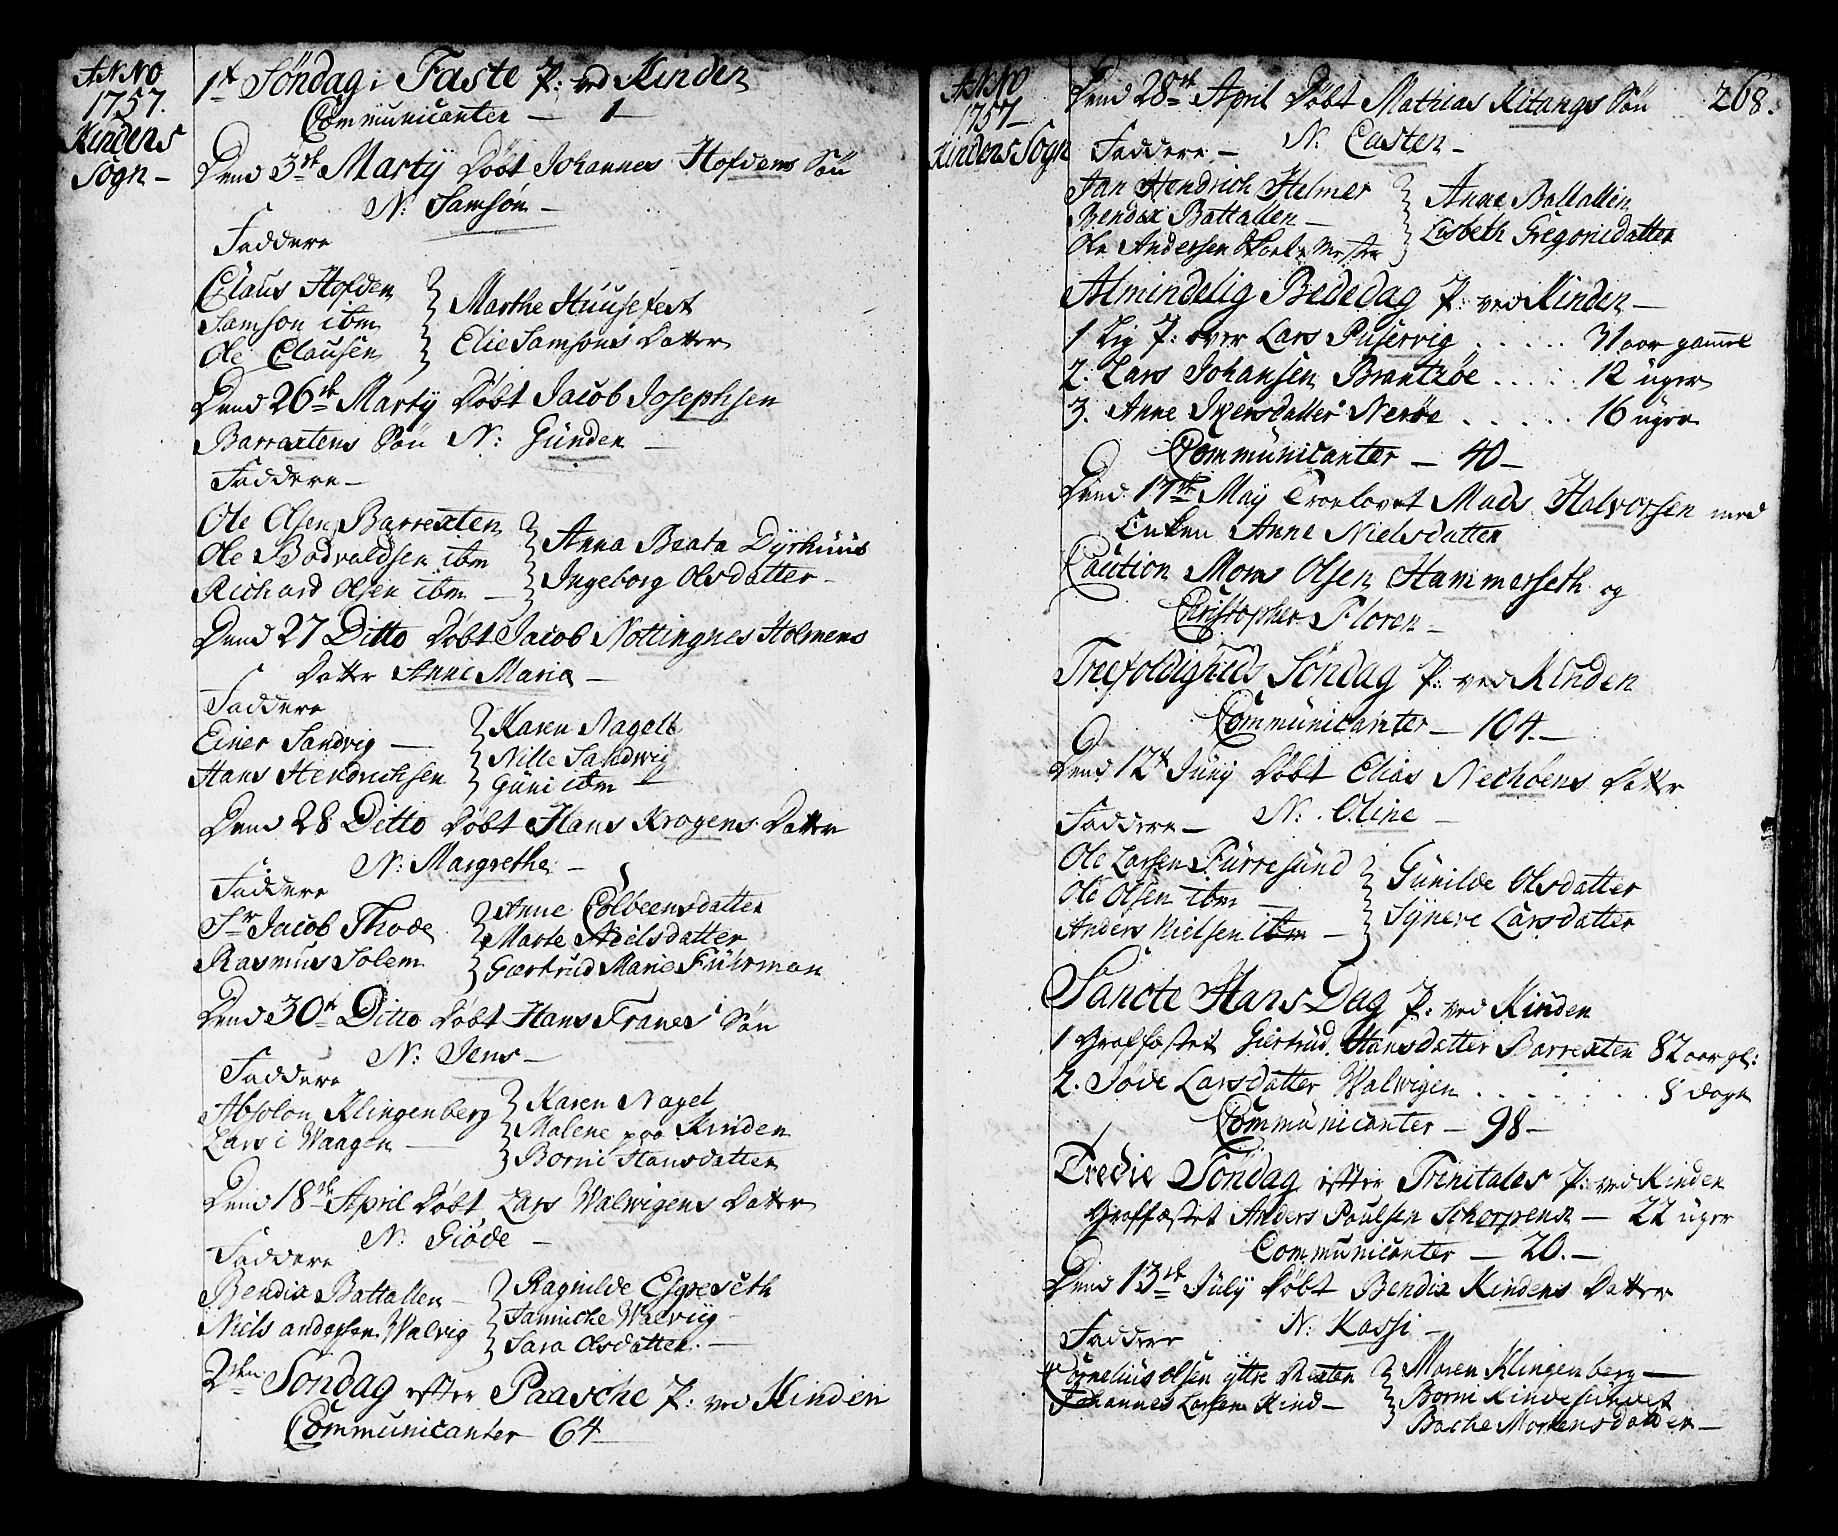 ANNO
1757.
Kindens
Sogn –
1te Søndag i Faste P: ved Kinden
Communicanter — 1 —
Dend 3de Martÿ Døbt Johannes Hofdens Søn
N: Samson —
Faddere
Claus Hofden
Samson ibm
Ole Clausen
Marthe Huusefest
Elie Samsons Datter
Dend 26de Martÿ Døbt Jacob Josephsen
Barrextens Søn N: Günder —
Faddere —
Ole Olsen Barrexten
Ole Bodvaldsen ibm
Richard Olsen ibm —
Anna Beata Dÿrhuus
Ingeborg Olsdatter —
Dend 27 Ditto Døbt Jacob Nottingnes Holmens
Datter Anne Maria —
Faddere
Einer Sandvig —
Hans Hendrichsen
Karen Nagelt
Nille Sandwig
Güni ibm —
Dend 28 Ditto Døbt Hans Krogens Datter
N: Margrethe —
Faddere
Sr Jacob Thode
Rasmus Solem
Anne Colbeensdatter
Marte Nielsdatter
Gertrud Marie Fuhrman
Dend 30te Ditto Døbt Hans Franes Søn
N: Jens —
Faddere
Absolon Klingenberg
Lars i Waagen —
Karen Nagel
Malene paa Kinden
Borni Hansdatter
Dend 18de April Døbt Lars Walwigens Datter
N: Giøde —
Faddere
Bendix Battallen —
Niels andersen Walvig
Ragnilde Esgeseth
Jannicke Walviig
Sara Olsdatter. —
2den Søndag efter Paasche P: ved Kinden
Communicanter 64
ANNO
1757 –
Kindens Sogn
268.
Dend 28de April Døbt Mathias Kitangs Søn
N: Casten —
Faddere —
Jan Hendrich Helmer
Bendix Battallen —
Ole Andersen Skoele Mester
Anne Battallen
Lisbeth Gregoriidatter
Almindelig Bededag P: ved Kinden —
1 Lig P: over Lars Puservig . . . . . 31 aar gammel
2. Lars Johansen Brantzøe . . . . 12 uger
3. Anne Iversdatter Nerøe . . . . . 16 uger
Communicanter — 40 —
Dend 17de Maÿ Troelovet Mads Halvorsen med
Enken Anne Nielsdatter
Caution Mons Olsen Hammerseth og
Christopher Floren —
Trefoldigheds Søndag P: ved Kinden
Communicanter — 104. —
Dend 12te Junÿ Døbt Elias Nechøens Datter
N: Oline —
Faddere —
Ole Larsen Furresund
Ole Olsen ibm —
Anders Nielsen ibm —
Günilde Olsdatter
Sÿnere Larsdatter
Sancte Hans Dag P: ved Kinden
1 Graffæstet Giertrud Hansdatter Barrexten 82 aar gl:
2. Søde Larsdatter Walwigen . . . . . . . 8 dage
Communicanter — 98 —
Tredie Søndag efter Trinitates P: ved Kinden
Graffæstet Anders Poulsen Schorpens — 22 uger
Communicanter — 20. —
Dend 13de Julÿ Døbt Bendix Kindens Datter
N: Kassi —
Faddere
Cornelius Olsen ÿttre Nexten
Johannes Larsen Kind —
Maren Klingenberg —
Borni Kindesundet
Barbe Mortensdatter —